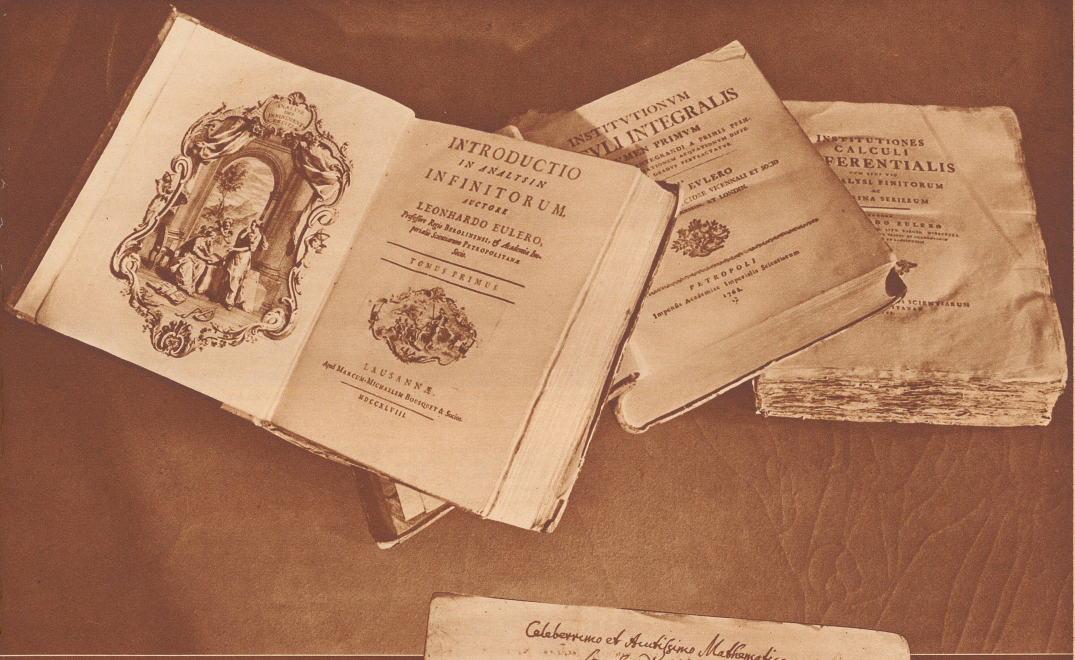 ANALYSE
DES
INTRODUCTIO
IN ANALYSIN
INFINITORUM.
AUCTORE
LEONHARDO EULERO,
Professore Regio BEROLINENSI, & Academiæ Im-
perialis Scientiarum PETROPOLITANÆ
Socio.
TOMUS PRIMUS
LAUSANNÆ,
Apud MARCUM-MICHAELEM BOUSQUET & Socios.
MDCCXLVIII
INSTITVTIONVM
VLI INTEGRALIS
MEN PRIMVM
EGRANDI A PRIMIS PRIN-
TIONEM AEQVATIONVM DIFFE-
GRADVS PERTRACTATVR.
EVLERO
VICENNALI ET SOCIO
ET LONDIN.
PETROPOLI
Impensis Academiae Imperialis Scientiarum
1768.
INSTITUTIONES
CALCULI
FERENTIALIS
CUM EIUS VSU
ALYSI FINITORUM
AC
INA SERIERUM
EULERO
SCIENTIARUM
Celeberrimo et Acutissimo Mathematico